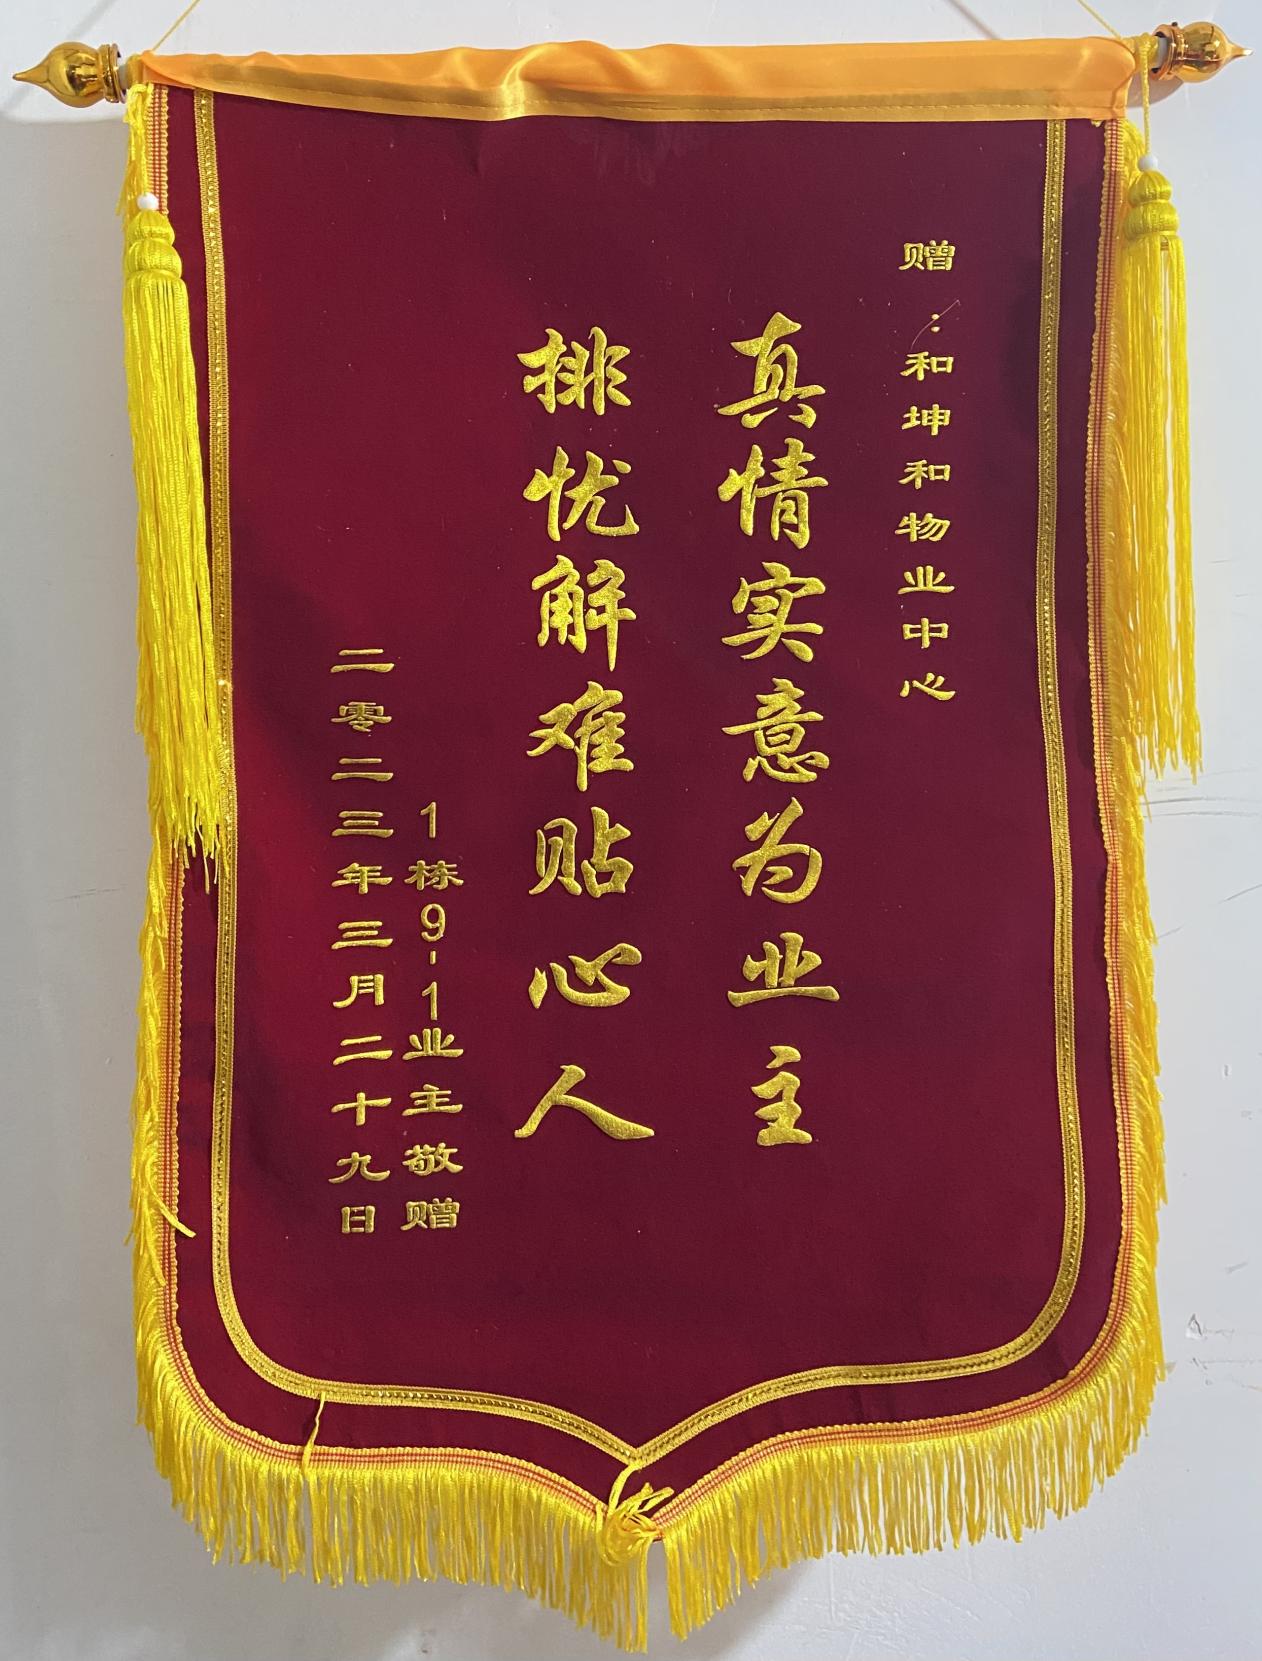 赠:和坤和物业中心
真情实意为业主
排忧解难贴心人
1栋9-1业主敬赠
二零二三年三月二十九日